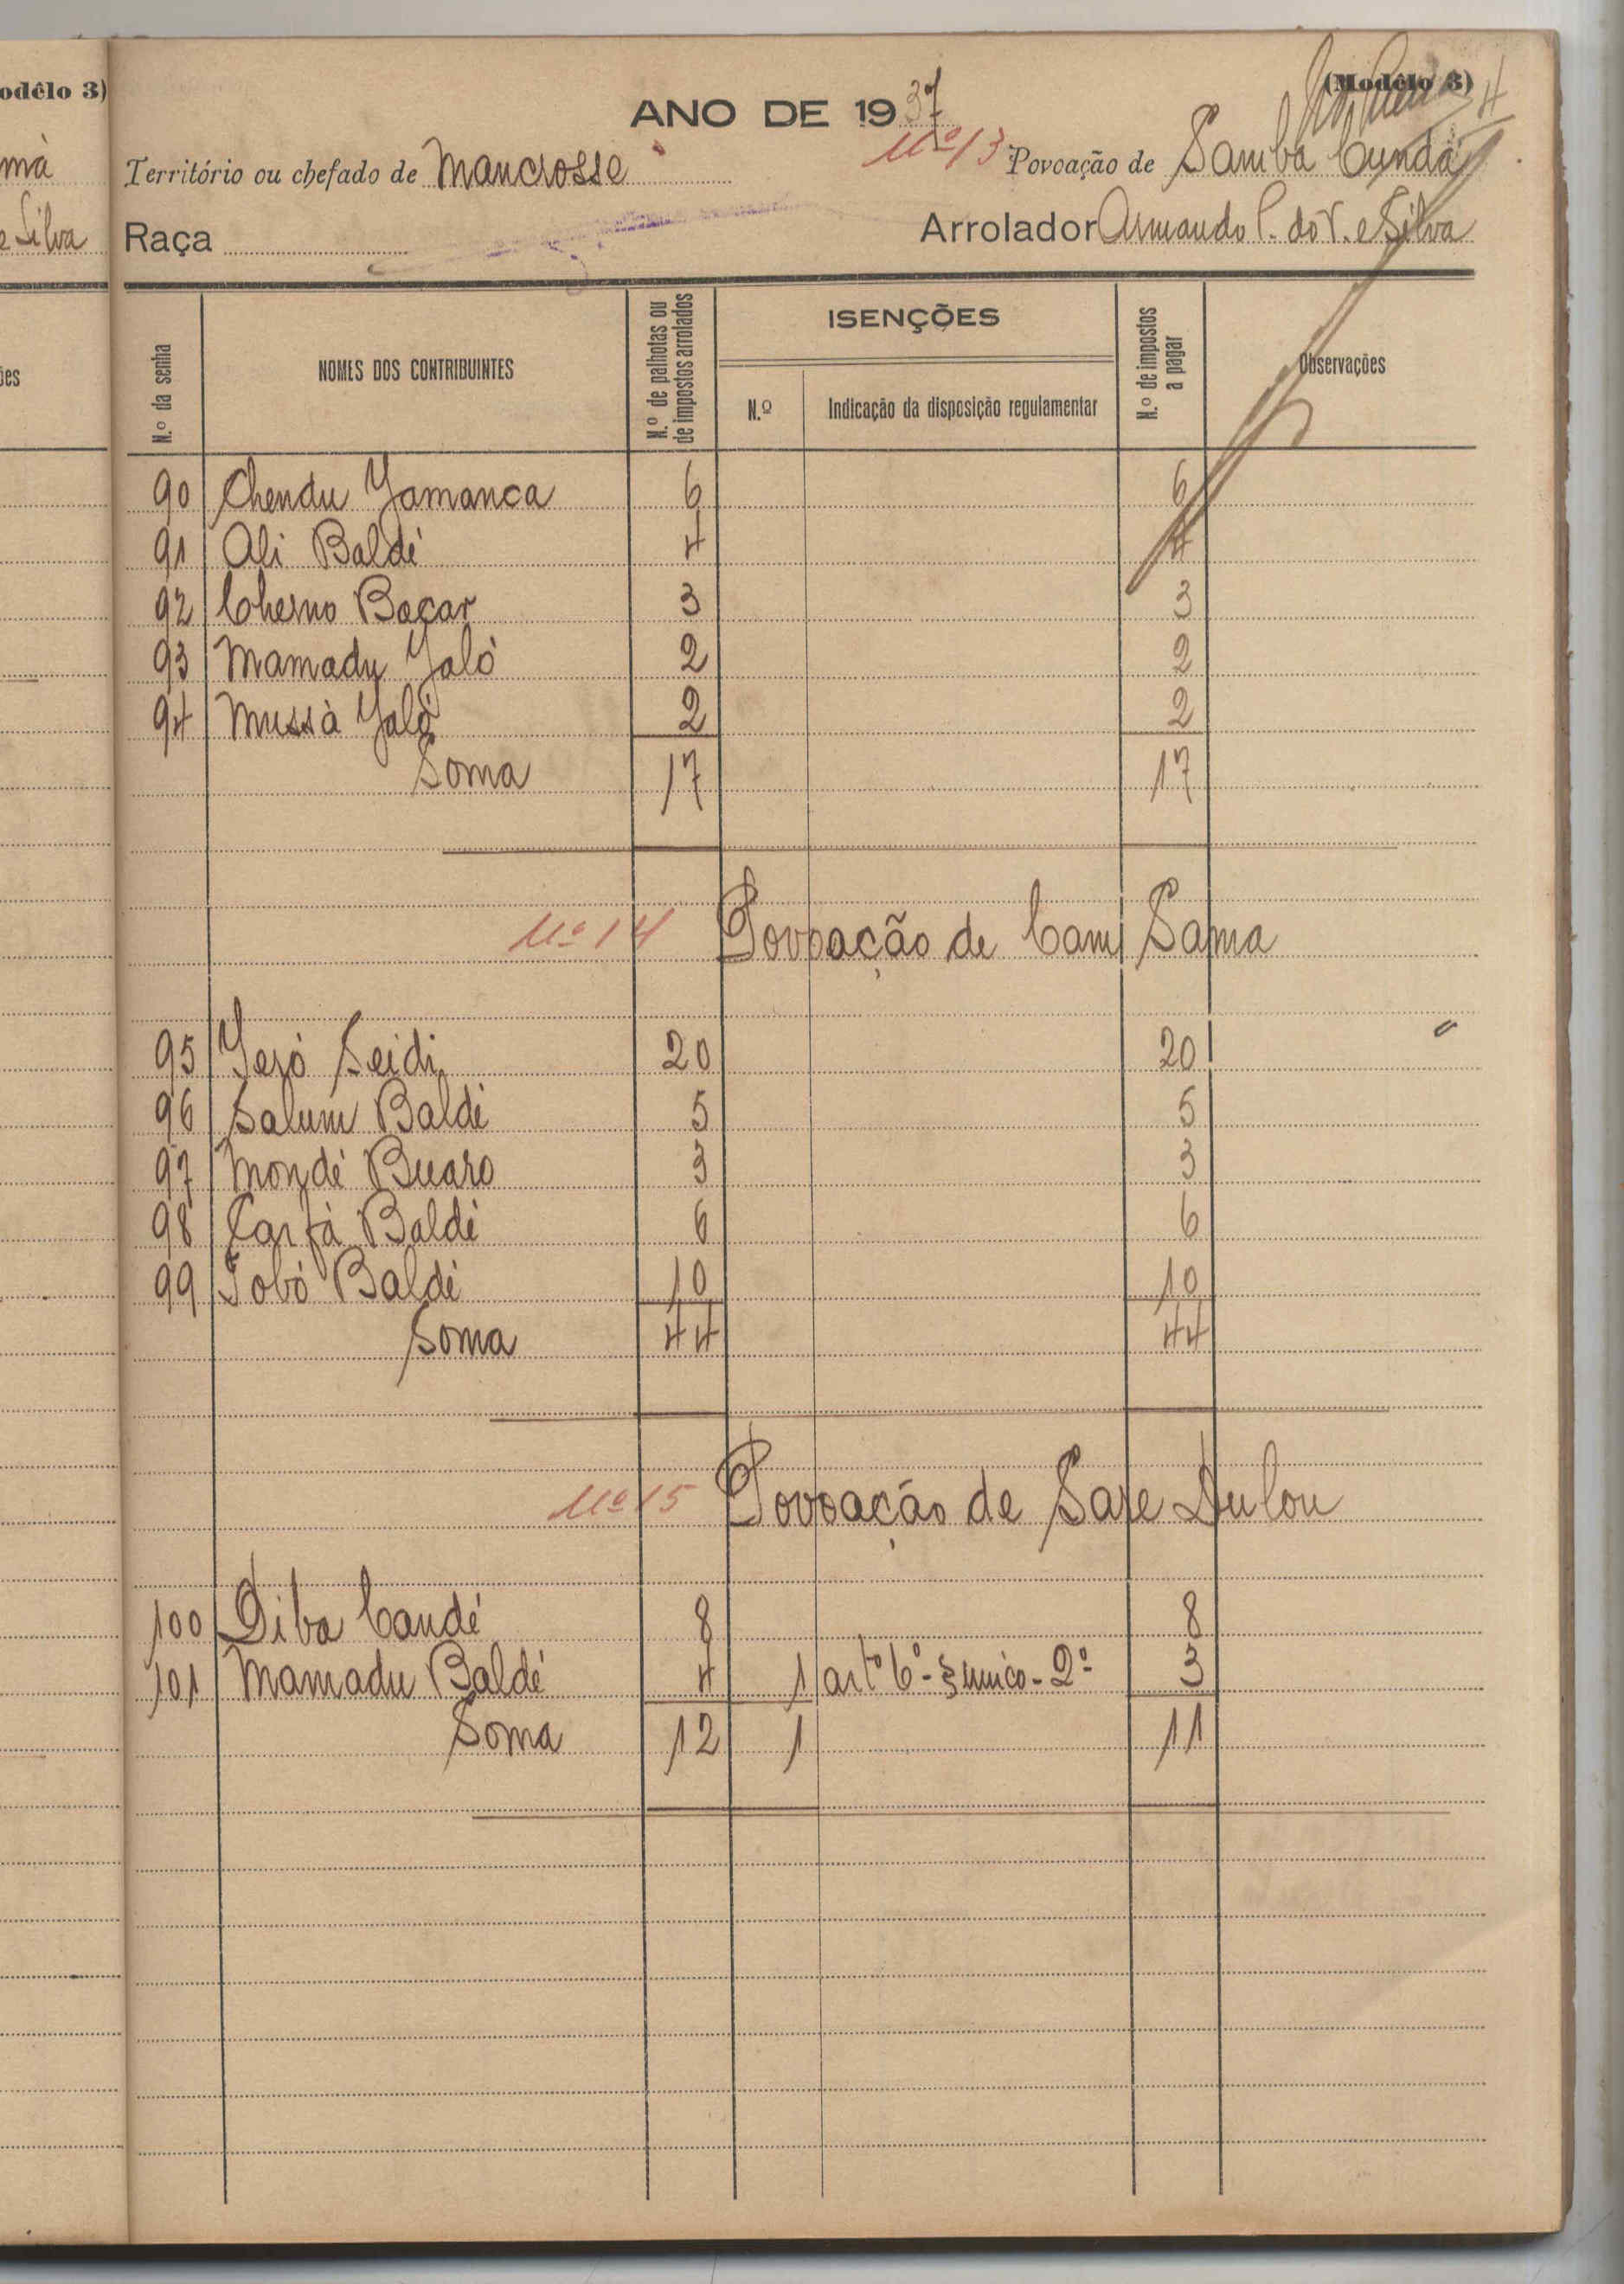 odêlo 3)
mà
e Silva
ões
(Modêlo 3)
ANO DE 1937
Território ou chefado de Mancrosse Nº 13 Povoação de Samba Cunda
Raça Arrolador Armando P. do V. e Silva
N.º da senha
NOMES DOS CONTRIBUINTES
N.º de palhotas ou de impostos arrolados
ISENÇÕES
N.º
Indicação da disposição regulamentar
N.º de impostos a pagar
Observações
90 Chendu Jamanca 6 6
91 Ali Baldé 4 4
92 Cherno Bacar 3 3
93 Mamadu Jaló 2 2
94 Mussà Jaló 2 2
Soma 17 17
Nº 14 Povoação de Cam Sama
95 Jeró Seidi 20 20
96 Salum Baldé 5 5
97 Mondé Buaro 3 3
98 Carfà Baldé 6 6
99 Jobó Baldé 10 10
Soma 44 44
Nº 15 Povoação de Sare Dulou
100 Diba Candé 8 8
101 Mamadu Baldé 4 1 artº 6º - § unico - 2º 3
Soma 12 1 11